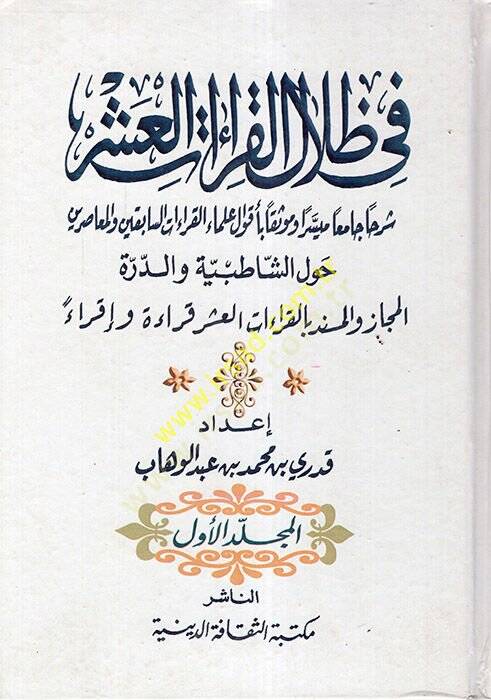 في ظلال القراءات العشر
شرحاً جامعاً ميسَّراً وموثقاً بأقوال علماء القراءات السابقين والمعاصرين
حَول الشاطبيَّية والدّرة
المجاز والمسند بالقراءات العشر قراءة وإقراءً
إعداد
قدري بن محمد بن عبد الوهاب
المجلد الأول
الناشر
مكتبة الثقافة الدينية